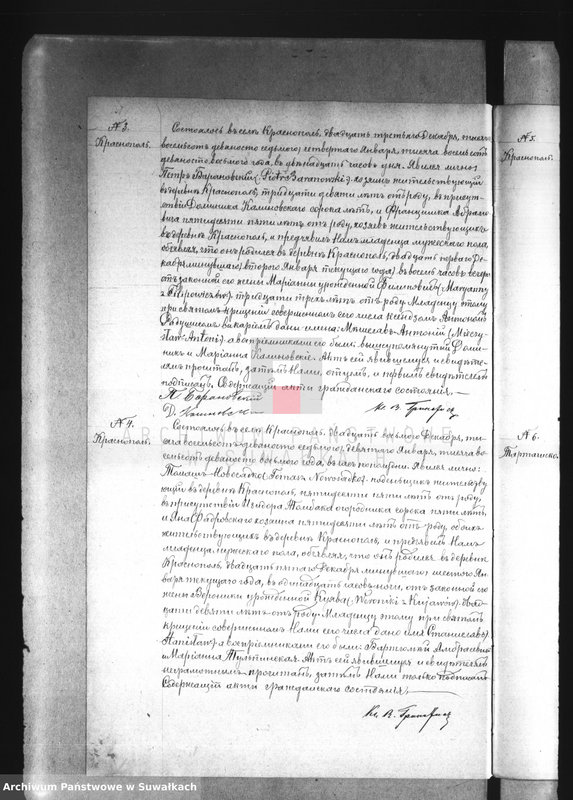 № 3.
Краснополь.
Состоялось въ селѣ Краснополь, двадцать третьяго Декабря, тысяча
восемьсотъ девяносто седьмого, четвертаго Января, тысяча восемьсотъ
девяносто восьмого года, въ двѣнадцать часовъ дня. Явился лично
Петръ Барановскій (Piotr Baranowski) хозяинъ жительствующій
въ деревнѣ Краснополь, тридцати девяти лѣтъ отъ роду, въ присут-
ствіи Доминика Калиновскаго сорока лѣтъ, и Францишка
пятидесяти пяти лѣтъ отъ роду, хозяевъ жительствующихъ
въ деревнѣ Краснополь, и предъявилъ Намъ младенца мужескаго пола,
объявляя, что онъ родился въ деревнѣ Краснополь, двадцать перваго Де-
кабря минувшаго, второго Января текущаго года, въ восемь часовъ вечера
отъ законной его жены Маріанны урожденной Филиповичъ (Maryanny
z Filipowiczów) тридцати трехъ лѣтъ отъ роду. Младенцу этому
при святомъ крещеніи совершенномъ сего числа Ксендзомъ Антоніемъ
викаріемъ даны имена: Мечиславъ-Антоній (Mieczy-
sław-Antoni), а воспріемниками его были: вышеупомянутый Доми-
никъ и Маріанна Калиновскіе. Актъ сей явившемуся и свидѣте-
лямъ прочитанъ, затѣмъ Нами, отцомъ, и первымъ свидѣтелемъ
подписанъ. Содержащій акты гражданскаго состоянія.
П. Барановскій
№ 4.
Краснополь.
Состоялось въ селѣ Краснополь, двадцать восьмого Декабря, ты-
сяча восемьсотъ девяносто седьмого, девятаго Января, тысяча во-
семьсотъ девяносто восьмого года, въ часъ пополудни. Явился лично:
Томашъ Новосадко (Tomasz Nowosadko) поденщикъ жительству-
ющій въ деревнѣ Краснополь, пятидесяти пяти лѣтъ отъ роду,
въ присутствіи Исидора огородника сорока пяти лѣтъ,
и Яна хозяина пятидесяти лѣтъ отъ роду, обоихъ
жительствующихъ въ деревнѣ Краснополь, и предъявилъ Намъ
младенца мужескаго пола, объявляя, что онъ родился въ деревнѣ
Краснополь, двадцать пятаго Декабря минувшаго, шестого Ян-
варя текущаго года, въ одинадцать часовъ ночи, отъ законной его
жены Вероники урожденной (Weroniki z Kujawów) двад-
цати девяти лѣтъ отъ роду. Младенцу этому при святомъ
крещеніи совершенномъ Нами сего числа дано имя Станиславъ
(Stanisław), а воспріемниками его были: Бартоломей
и Маріанна. Актъ сей явившемуся и свидѣтелямъ
неграмотнымъ прочитанъ, затѣмъ Нами только подписанъ.
Содержащій акты гражданскаго состоянія.
№ 5.
Краснополь.
№ 6.
Archiwum Państwowe w Suwałkach